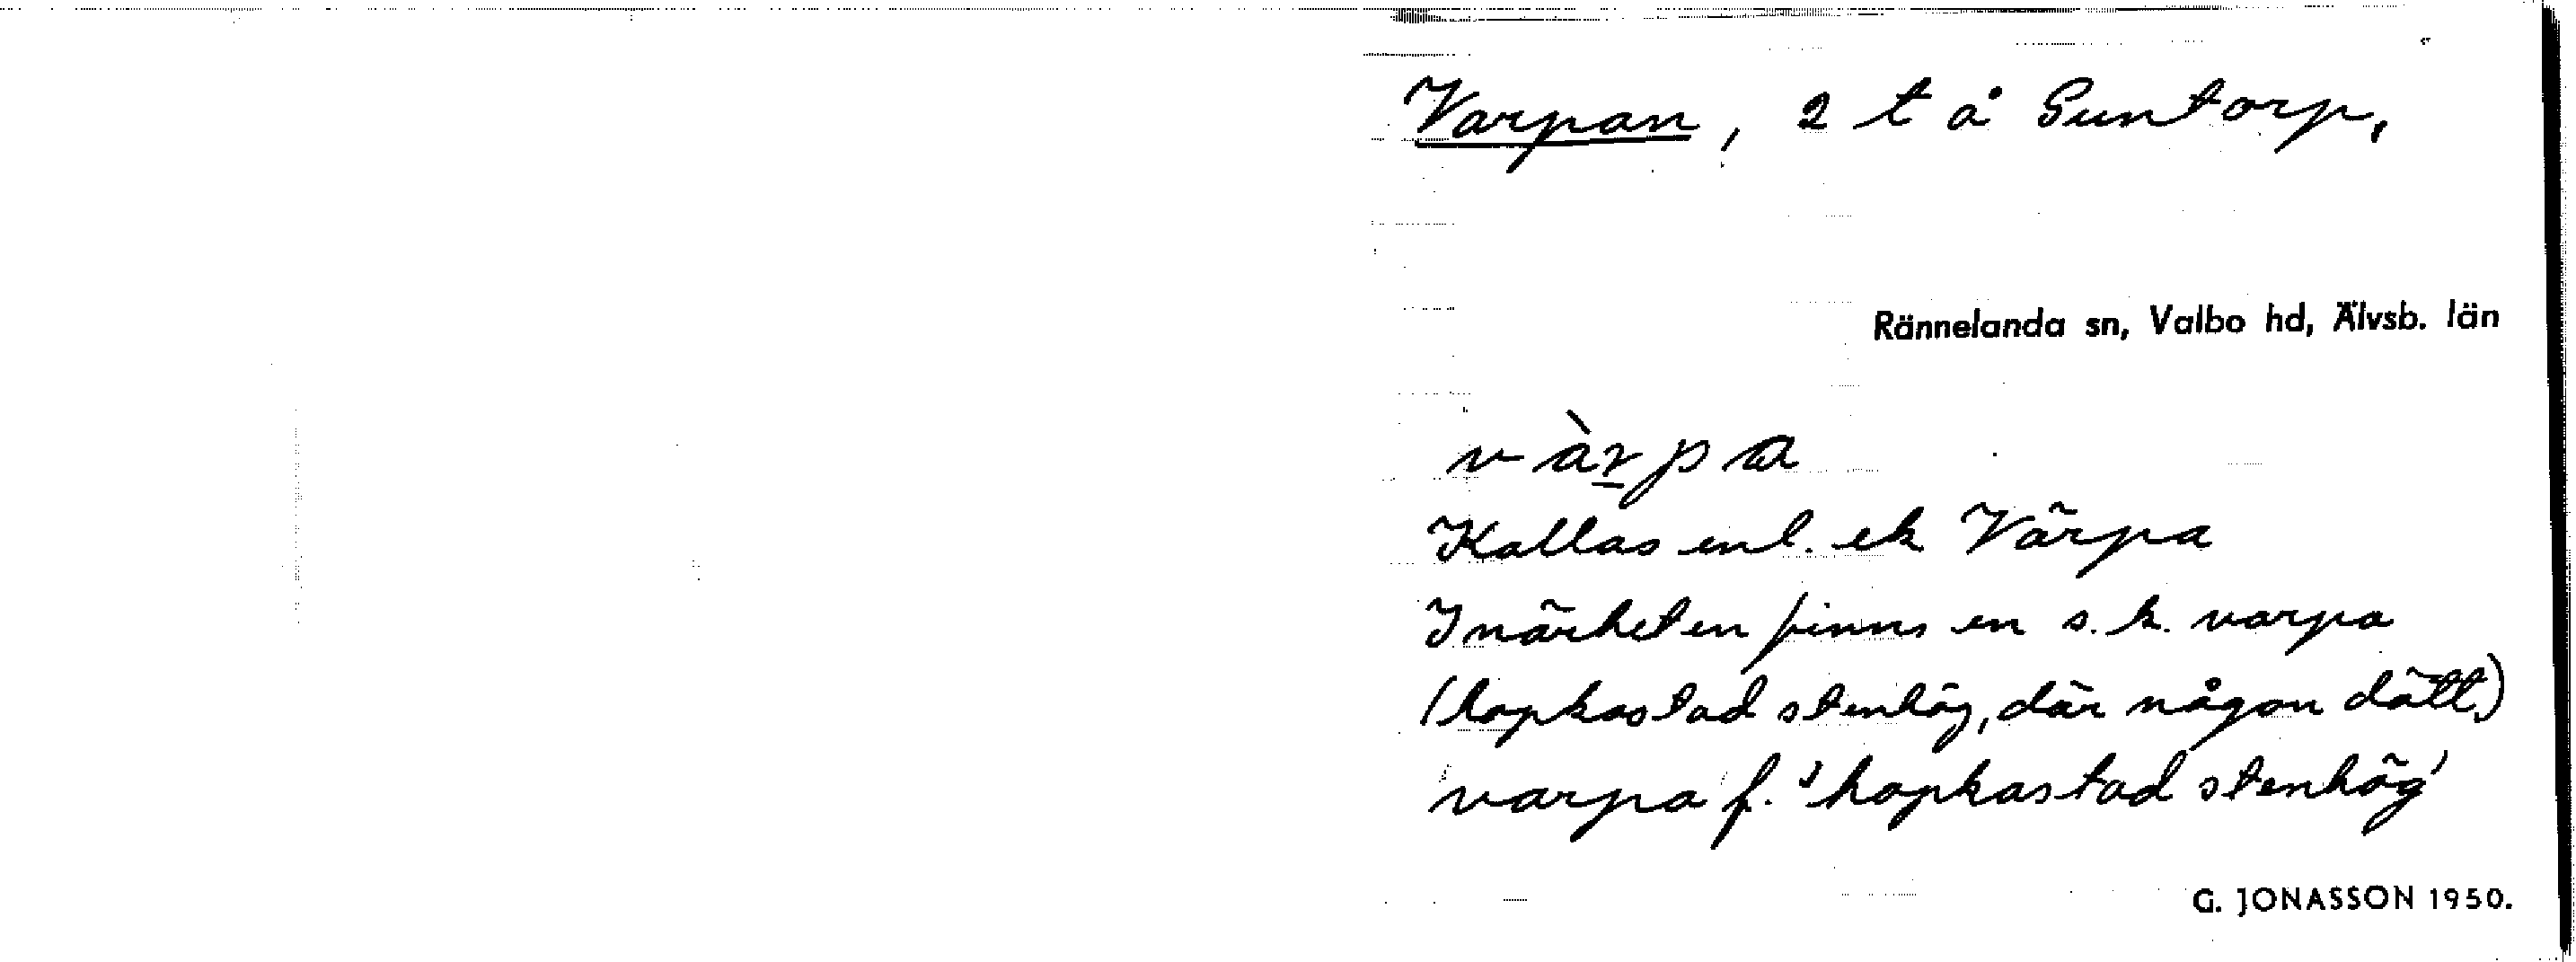 Varpan, 2 t å Guntorp,
Rännelanda sn, Valbo hd, Älvsb. län
vàrpa
Kallas enl. ek Värpa
I närheten finns en s.k. varpa
(hopkastad stenhög, där någon dött)
varpa f. 'hopkastad stenhög'
G. JONASSON 1950.